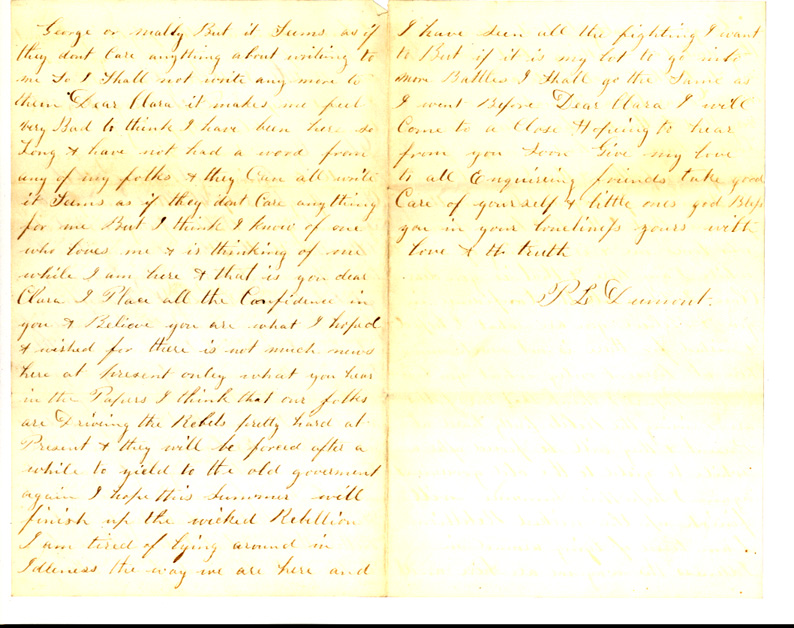 George or matty But it Seems as if
they dont Care anything about writing to
me So I Shall not write any more to
them Dear Clara it makes me feel
very Bad to think I have been here so
Long & have not had a word from
any of my folks & they Can all write
it Seems as if they dont Care anything
for me But I think I know of one
who loves me & is thinking of me
while I am here & that is you dear
Clara I Place all the Confidence in
you & Believe you are what I hoped
& wished for there is not much news
here at present onley what you hear
in the Papers I think that our folks
are Driving the Rebels pretty hard at
Present & they will be forced after a
while to yield to the old goverment
again I hope this Summer will
finish up the wicked Rebellion
I am tired of lying around in
Idleness the way we are here and
I have seen all the fighting I want
to But if it is my lot to go into
more Battles I Shall go the Same as
I went Before Dear Clara I will
Come to a Close Hopeing to hear
from you Soon Give my love
to all Enquiring friends take good
Care of yourself & little ones god Bless
you in your loneliness yours with
love & truth
P L Dumont.